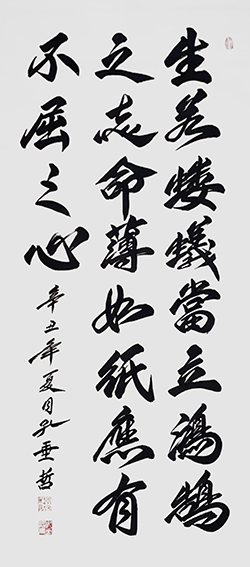 生若蝼蟻當立鴻鹄
之志命薄如紙應有
不屈之心
辛丑年夏月孔垂哲